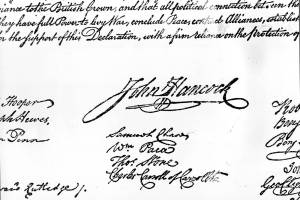 to the British Crown, and that all political connection between the
they have full Power to levy War, conclude Peace, contract Alliances, establish
the support of this Declaration, with a firm reliance on the Protection of
John Hancock
Hooper
Hewes,
Penn
Samuel Chase
Wm Paca
Thos Stone
Charles Carroll of Carrollton
Rutledge